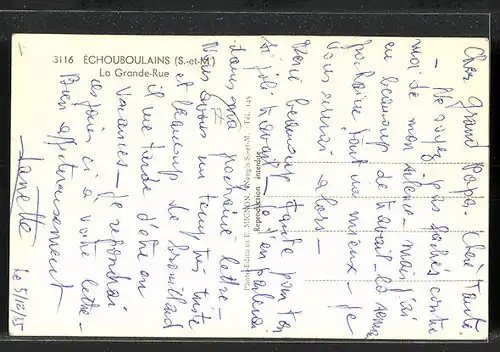 3116 ÉCHOUBOULAINS (S.-et-M.)
La Grande-Rue
Photo-Editions E. MIGNON, Nangis S.-et-M. Tél. 145
Reproduction interdite
Cher Grand Papa. Chère Tante.
- Ne soyez pas fâchés contre
moi de mon silence - mais j'ai
eu beaucoup de travail - la semaine
prochaine tout ira mieux - je
vous écrirai alors -
Merci beaucoup Tante pour ton
si joli travail - je t'en parlerai
dans ma prochaine lettre -
Nous avons un temps très triste
et beaucoup de brouillard
il me tarde d'être en
vacances - Je répondrai
ces jours ci à votre lettre -
Bien affectueusement
Le 5/12/55